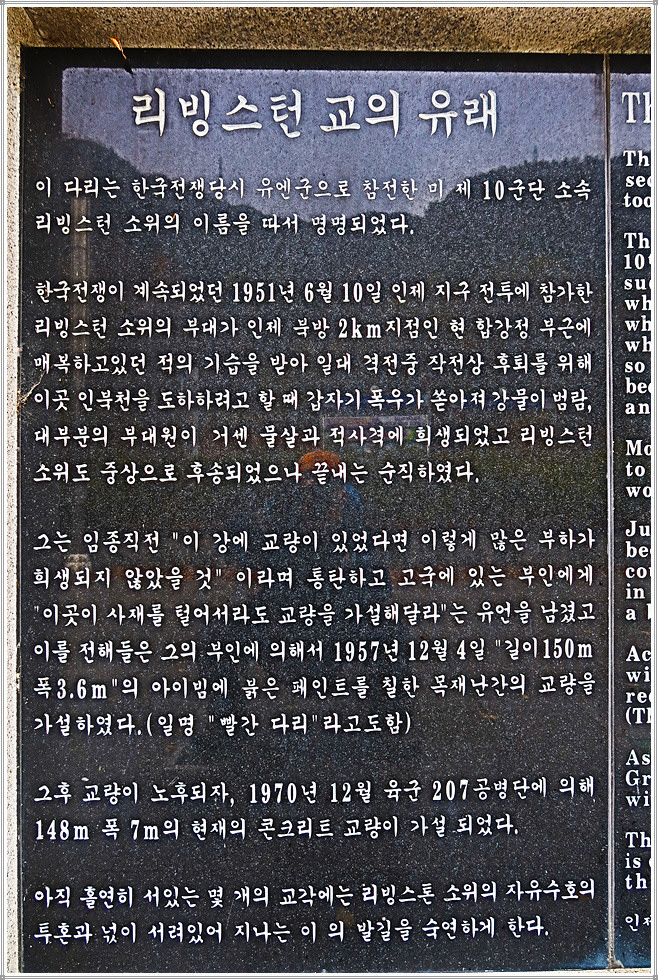 리빙스턴 교의 유래
이 다리는 한국전쟁당시 유엔군으로 참전한 미 제 10군단 소속
리빙스턴 소위의 이름을 따서 명명되었다.
한국전쟁이 계속되었던 1951년 6월 10일 인제 지구 전투에 참가한
리빙스턴 소위의 부대가 인제 북방 2km지점인 현 합강정 부근에
매복하고있던 적의 기습을 받아 일대 격전중 작전상 후퇴를 위해
이곳 인북천을 도하하려고 할 때 갑자기 폭우가 쏟아져 강물이 범람,
대부분의 부대원이 거센 물살과 적사격에 희생되었고 리빙스턴
소위도 중상으로 후송되었으나 끝내는 순직하였다.
그는 임종직전 "이 강에 교량이 있었다면 이렇게 많은 부하가
희생되지 않았을 것" 이라며 통탄하고 고국에 있는 부인에게
"이곳이 사재를 털어서라도 교량을 가설해달라"는 유언을 남겼고
이를 전해들은 그의 부인에 의해서 1957년 12월 4일 "길이150m
폭3.6m"의 아이빔에 붉은 페인트를 칠한 목재난간의 교량을
가설하였다.(일명 "빨간 다리"라고도함)
그후 교량이 노후되자, 1970년 12월 육군 207공병단에 의해
148m 폭 7m의 현재의 콘크리트 교량이 가설 되었다.
아직 홀연히 서있는 몇 개의 교각에는 리빙스톤 소위의 자유수호의
투혼과 넋이 서려있어 지나는 이 의 발길을 숙연하게 한다.